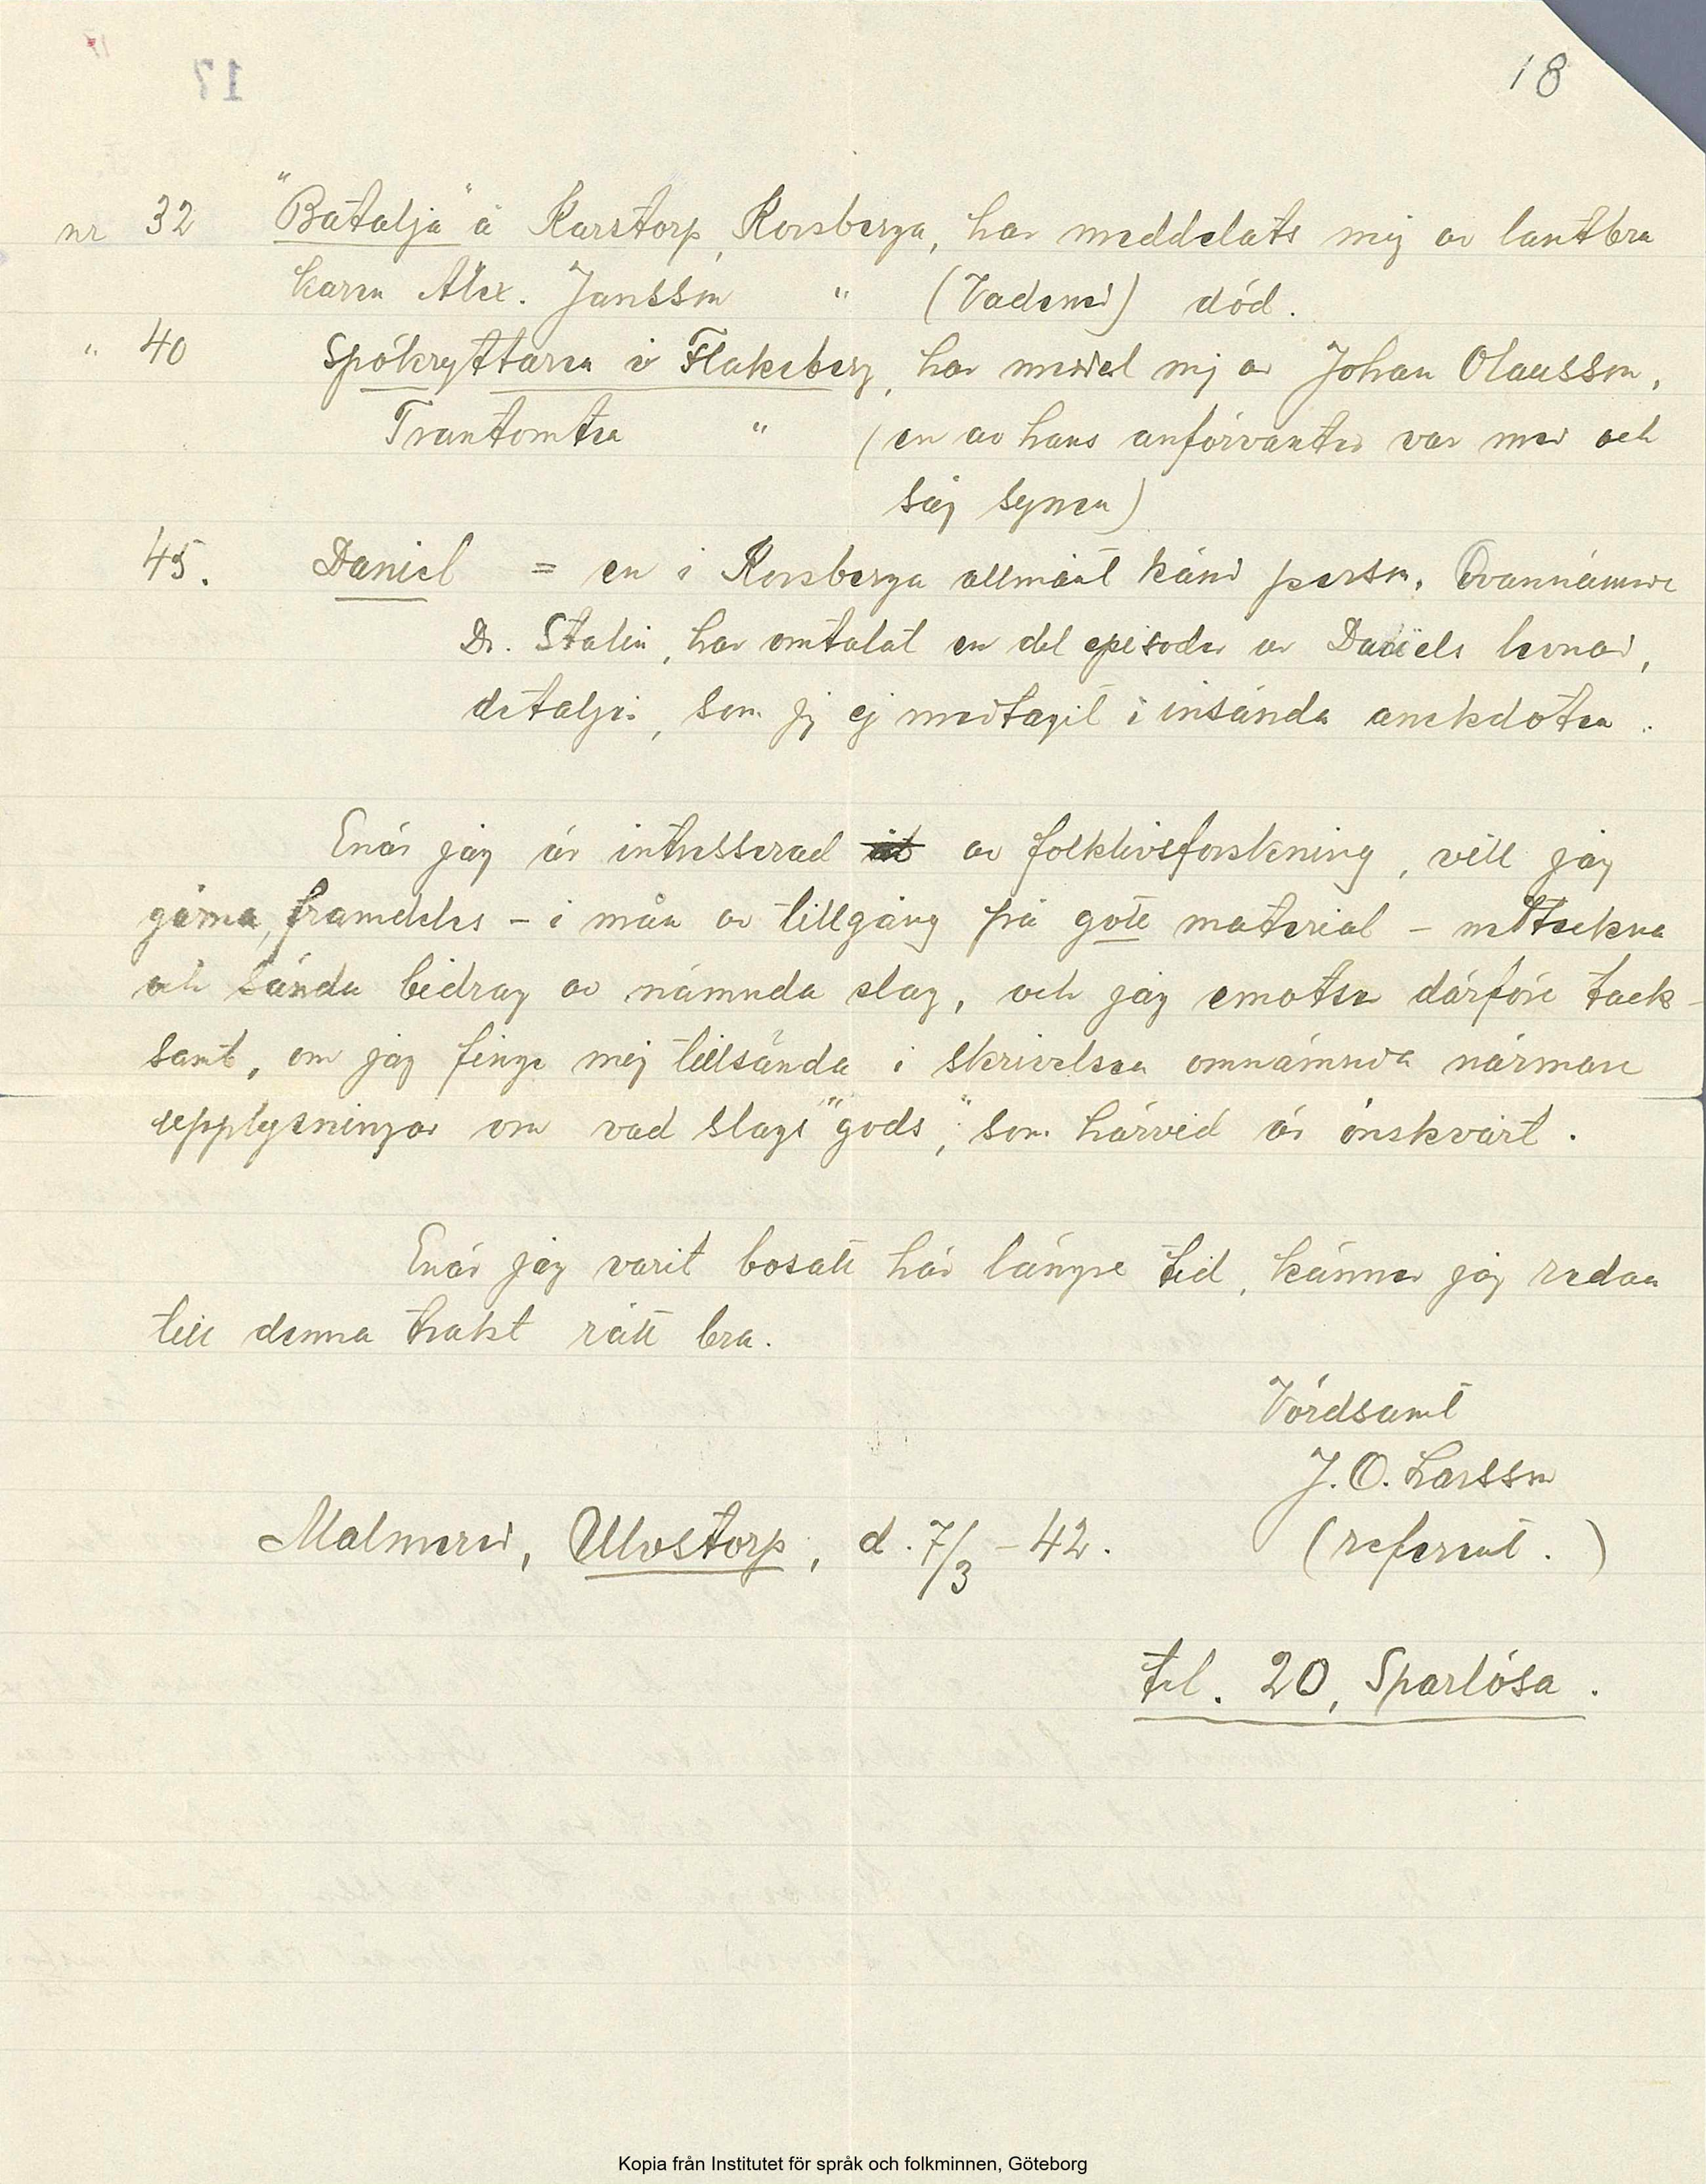 18
17
nr 32 "Batalja" å Karstorp, Korsberga, har meddelats mig av lantbru
karen Alex. Jansson " (Vadened) död.
" 40 Spökryttaren i Flakeberg, har meddel mig av Johan Olausson,
Trantomten " (en av hans anförvanter var med och
såg synen)
45. Daniel = en i Korsberga allmänt känd person. Ovannämnde
Dr. Stalin, har omtalat en del episoder av Daniels levnad,
detaljer, som jag ej medtagit i insända anekdoten.
Enär jag är intresserad av folklivsforskning, vill jag
gärna, framdeles - i mån av tillgång på gott material - nedteckna
och sända bidrag av nämnda slag, och jag emotser därföre tack-
samt, om jag finge mig tillsända i skrivelsen omnämnda närmare
upplysningar om vad slags "gods," som härvid är önskvärt.
Enär jag varit bosatt här längre tid, känner jag redan
till denna trakt rätt bra.
Vördsamt
J. O. Larsson
Malmered, Ulvstorp, d. 7/3 - 42. (referent.)
tel. 20, Sparlösa.
Kopia från Institutet för språk och folkminnen, Göteborg